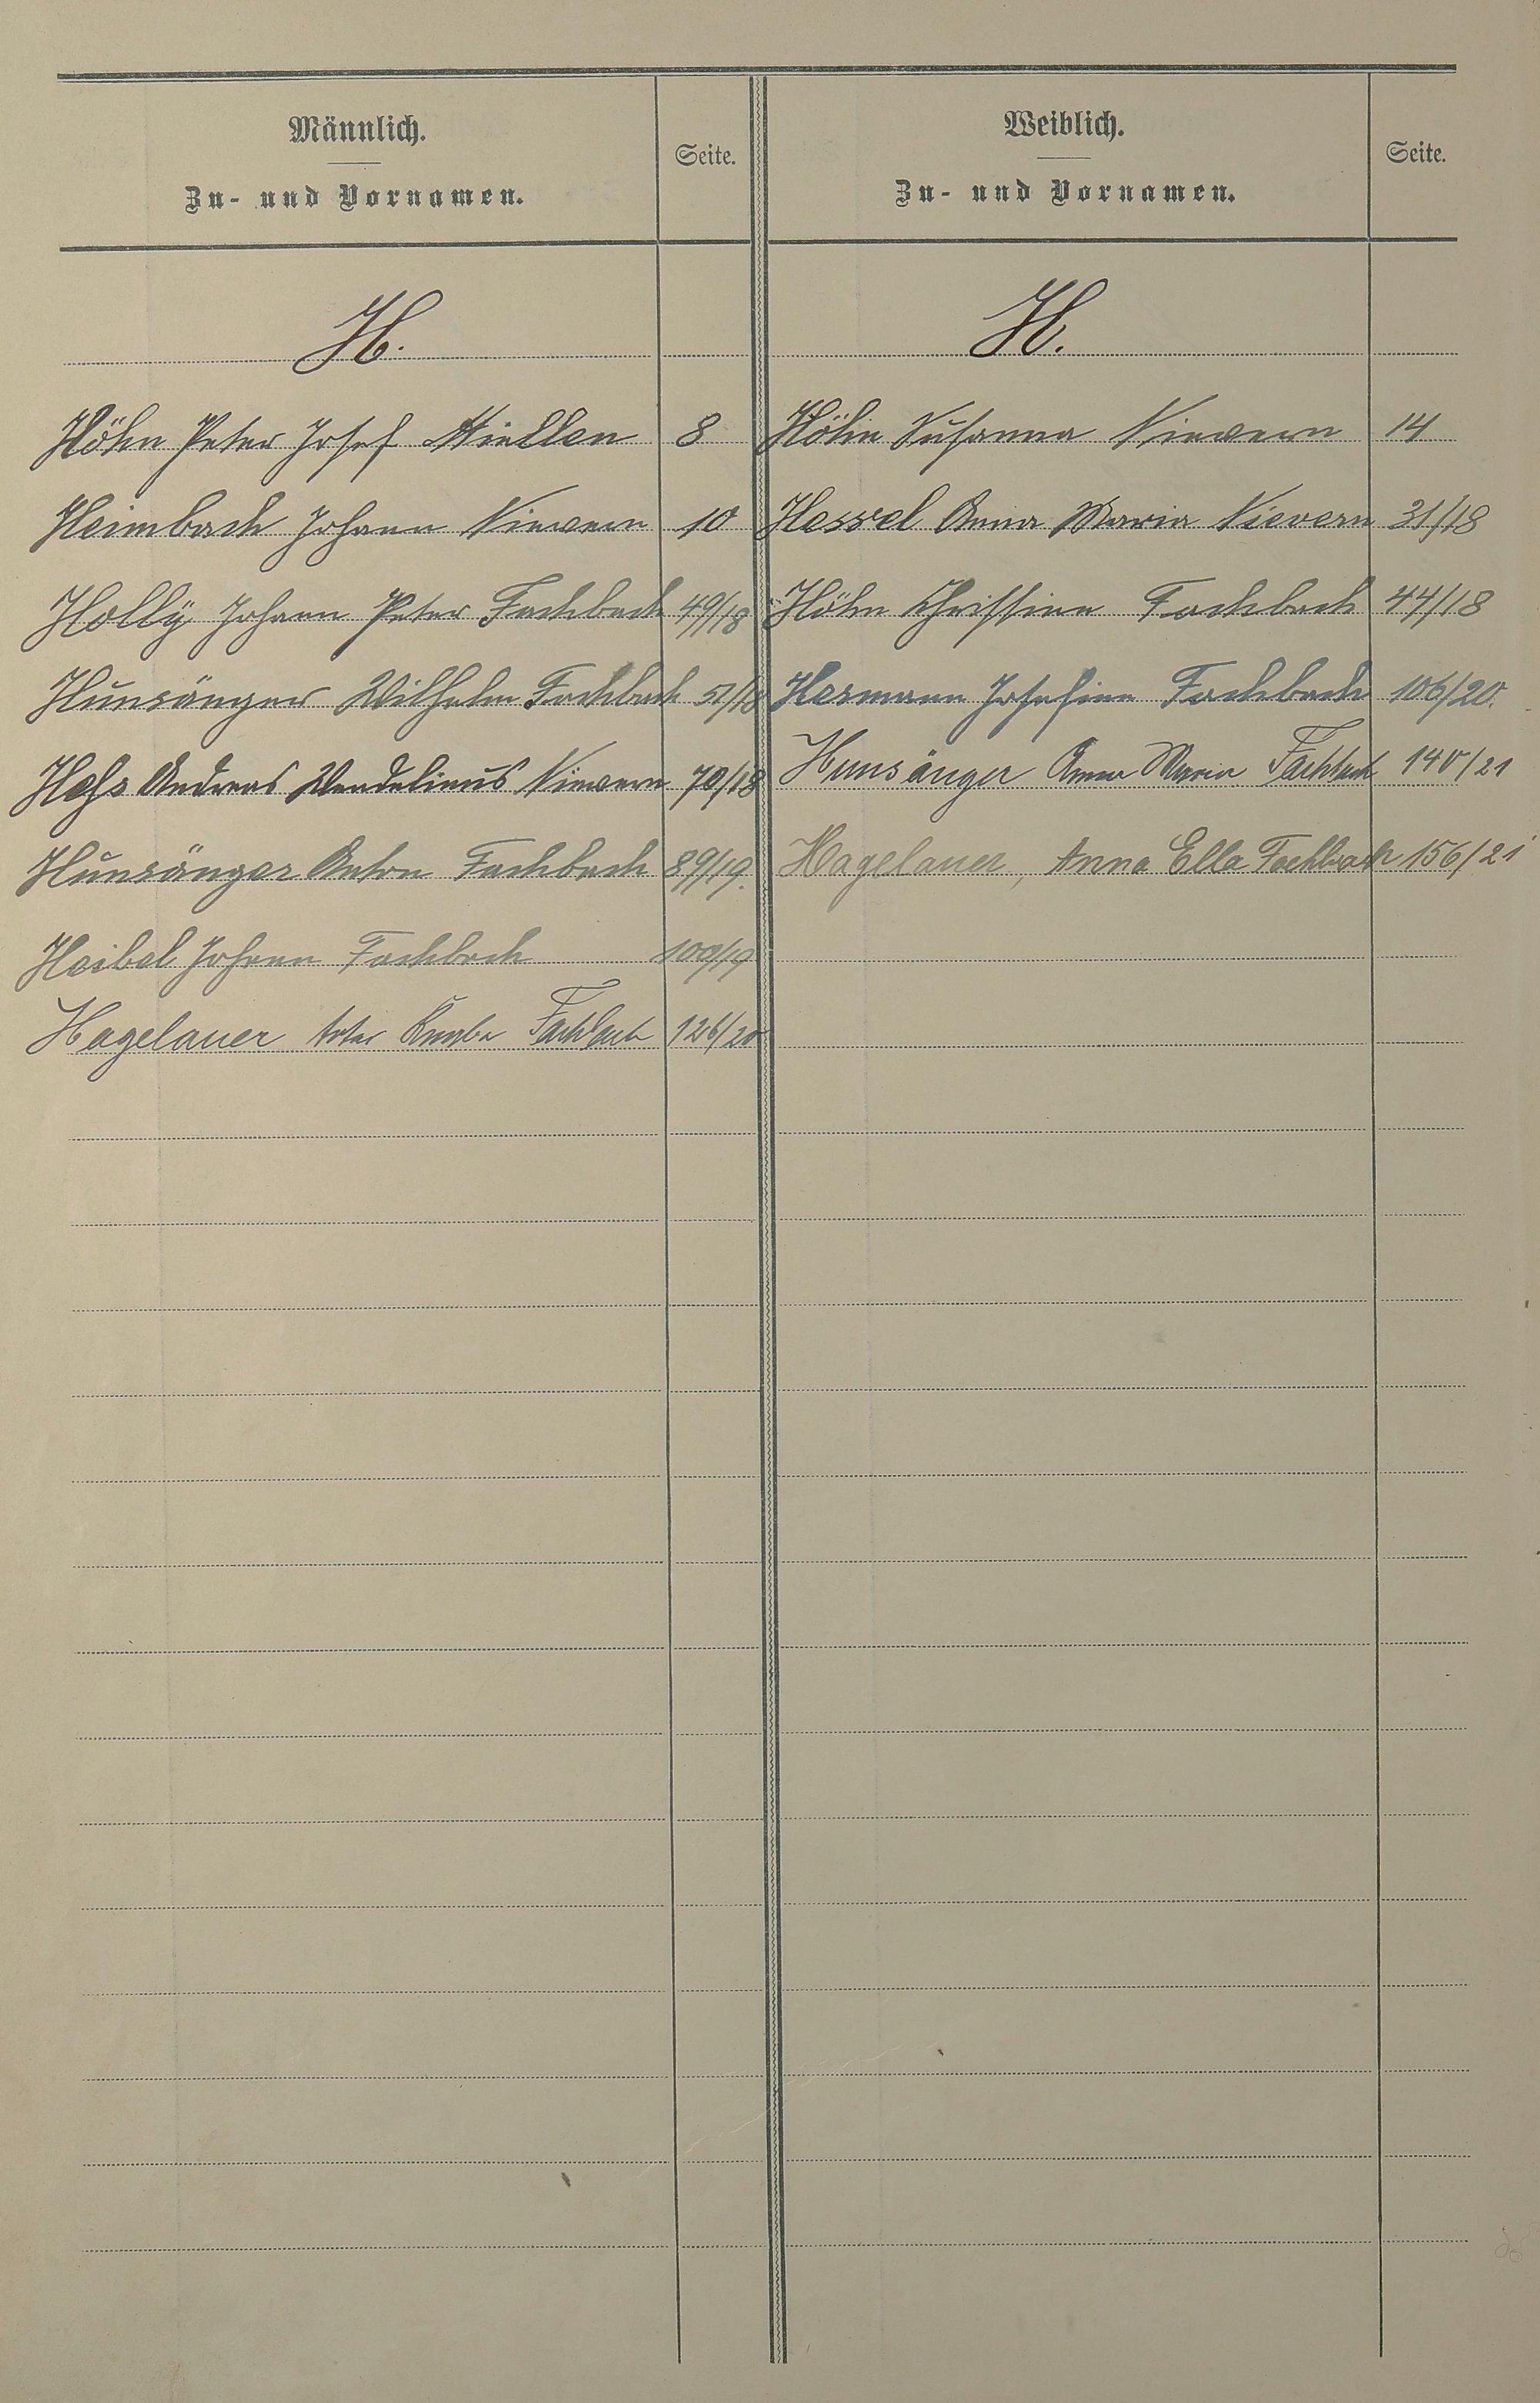 Männlich.
Zu- und Vornamen.
Seite.
H.
Höhn Peter Josef Miellen 8
Heimbach Johann Nievern 10
Holly Johann Peter Fachbach 49/18
Hunsänger Wilhelm Fachbach 51/18
Andreas Wendelinus Nievern 70/18
Hunsänger Anton Fachbach 89/19.
Heibel Johann Fachbach 100/19
Hagelauer toter Knabe Fachbach 126/20
Weiblich.
Zu- und Vornamen.
Seite.
H.
Höhn Susanna Nievern 14
Hessel Anna Maria Nievern 31/18
Höhn Christine Fachbach 44/18
Hermann Josefine Fachbach 106/20.
Hunsänger Anna Maria Fachbach 140/21
Hagelauer, Anna Ella Fachbach 156/21